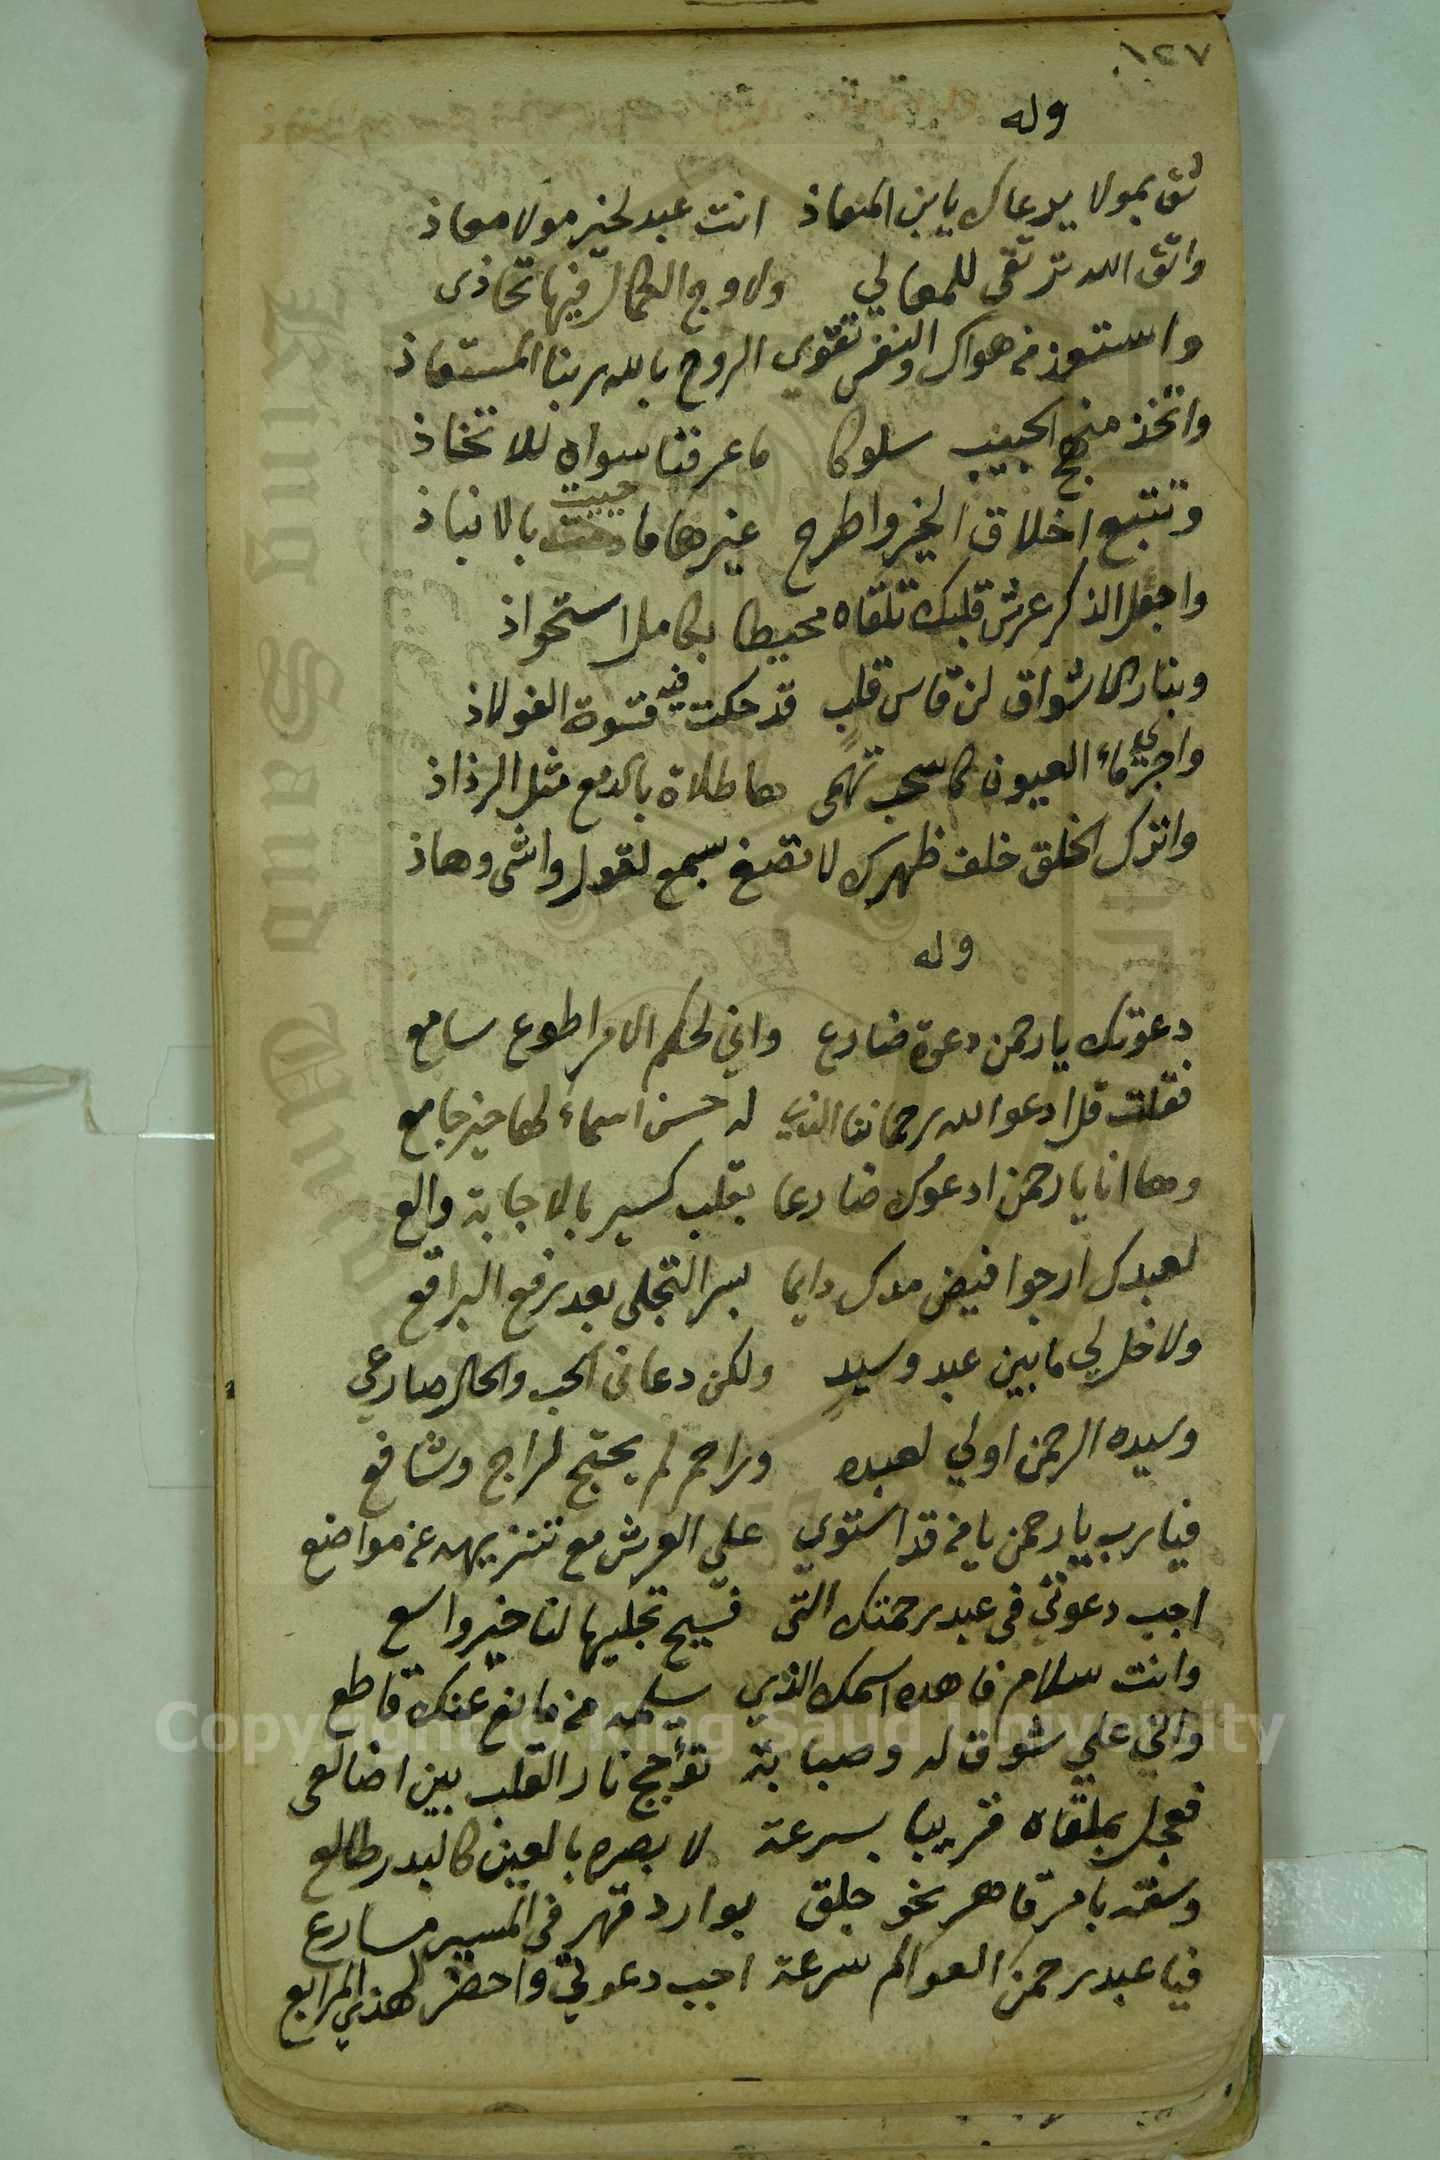 ١٢٧
وله
ثق بمولا يرعاك يابن المعاذ انت عبد لخير مولا معاذ
واتق الله ترتقى للمعالي ولاوج الكمال فيها تحاذى
واستعذ من هواك والنفس تقوي الروح بالله ربنا المستعاذ
واتخذ منهج الحبيب سلوكا ما عرفنا سواه للاتخاذ
وتتبع اخلاق الخير واطرح غيرها ما حييت بالانباذ
واجعل الذكر عرش قلبك تلقاه محيطا بكامل استحواذ
وبنار الاشواق لن قاس قلب قد حكت فيه قسوة الفولاذ
واجري ماء العيون كالسحب تهمى هاطلاة بالدمع مثل الرذاذ
واترك الخلق خلف ظهرك لا تصغ بسمع لقول واشى وهاذ
وله
دعوتك يا رحمن دعوة ضارع واني لحكم الامر اطوع سامع
فقلت قل ادعوا الله رحماننا الذي له حسن اسماء لها خير جامع
وها انا يا رحمن ادعوك ضارعا بقلب كسير بالاجابة والع
لعبدك ارجوا فيض مدك دايما بسر التجلى بعد رفع البراقع
ولا خل لي ما بين عبد وسيد ولكن دعانى الحب والحال صارعي
وسيده الرحمن اولي لعبده وراحم لم يحتج لراج وشافع
فيا رب يا رحمن يا من قد استوي على العرش مع تنزيهه عن مواضع
اجب دعوتى فى عبد رحمتك التى فسيح تجليها لنا خير واسع
وانت سلام فاهده اسمك الذي يسلمه من مانع عنك قاطع
واني علي شوق له وصبابة تؤجج نار القلب بين اضالعى
فعجل بملقاه قريبا بسرعة لابصره بالعين كالبدر طالع
وسقه بامر قاهر نحو جلق بوارد قهر فى المسير مسارع
فيا عبد رحمن العوالم سرعة اجب دعوتي واحضر لهذي المرابع
King Saud University
1957
Copyright © King Saud University